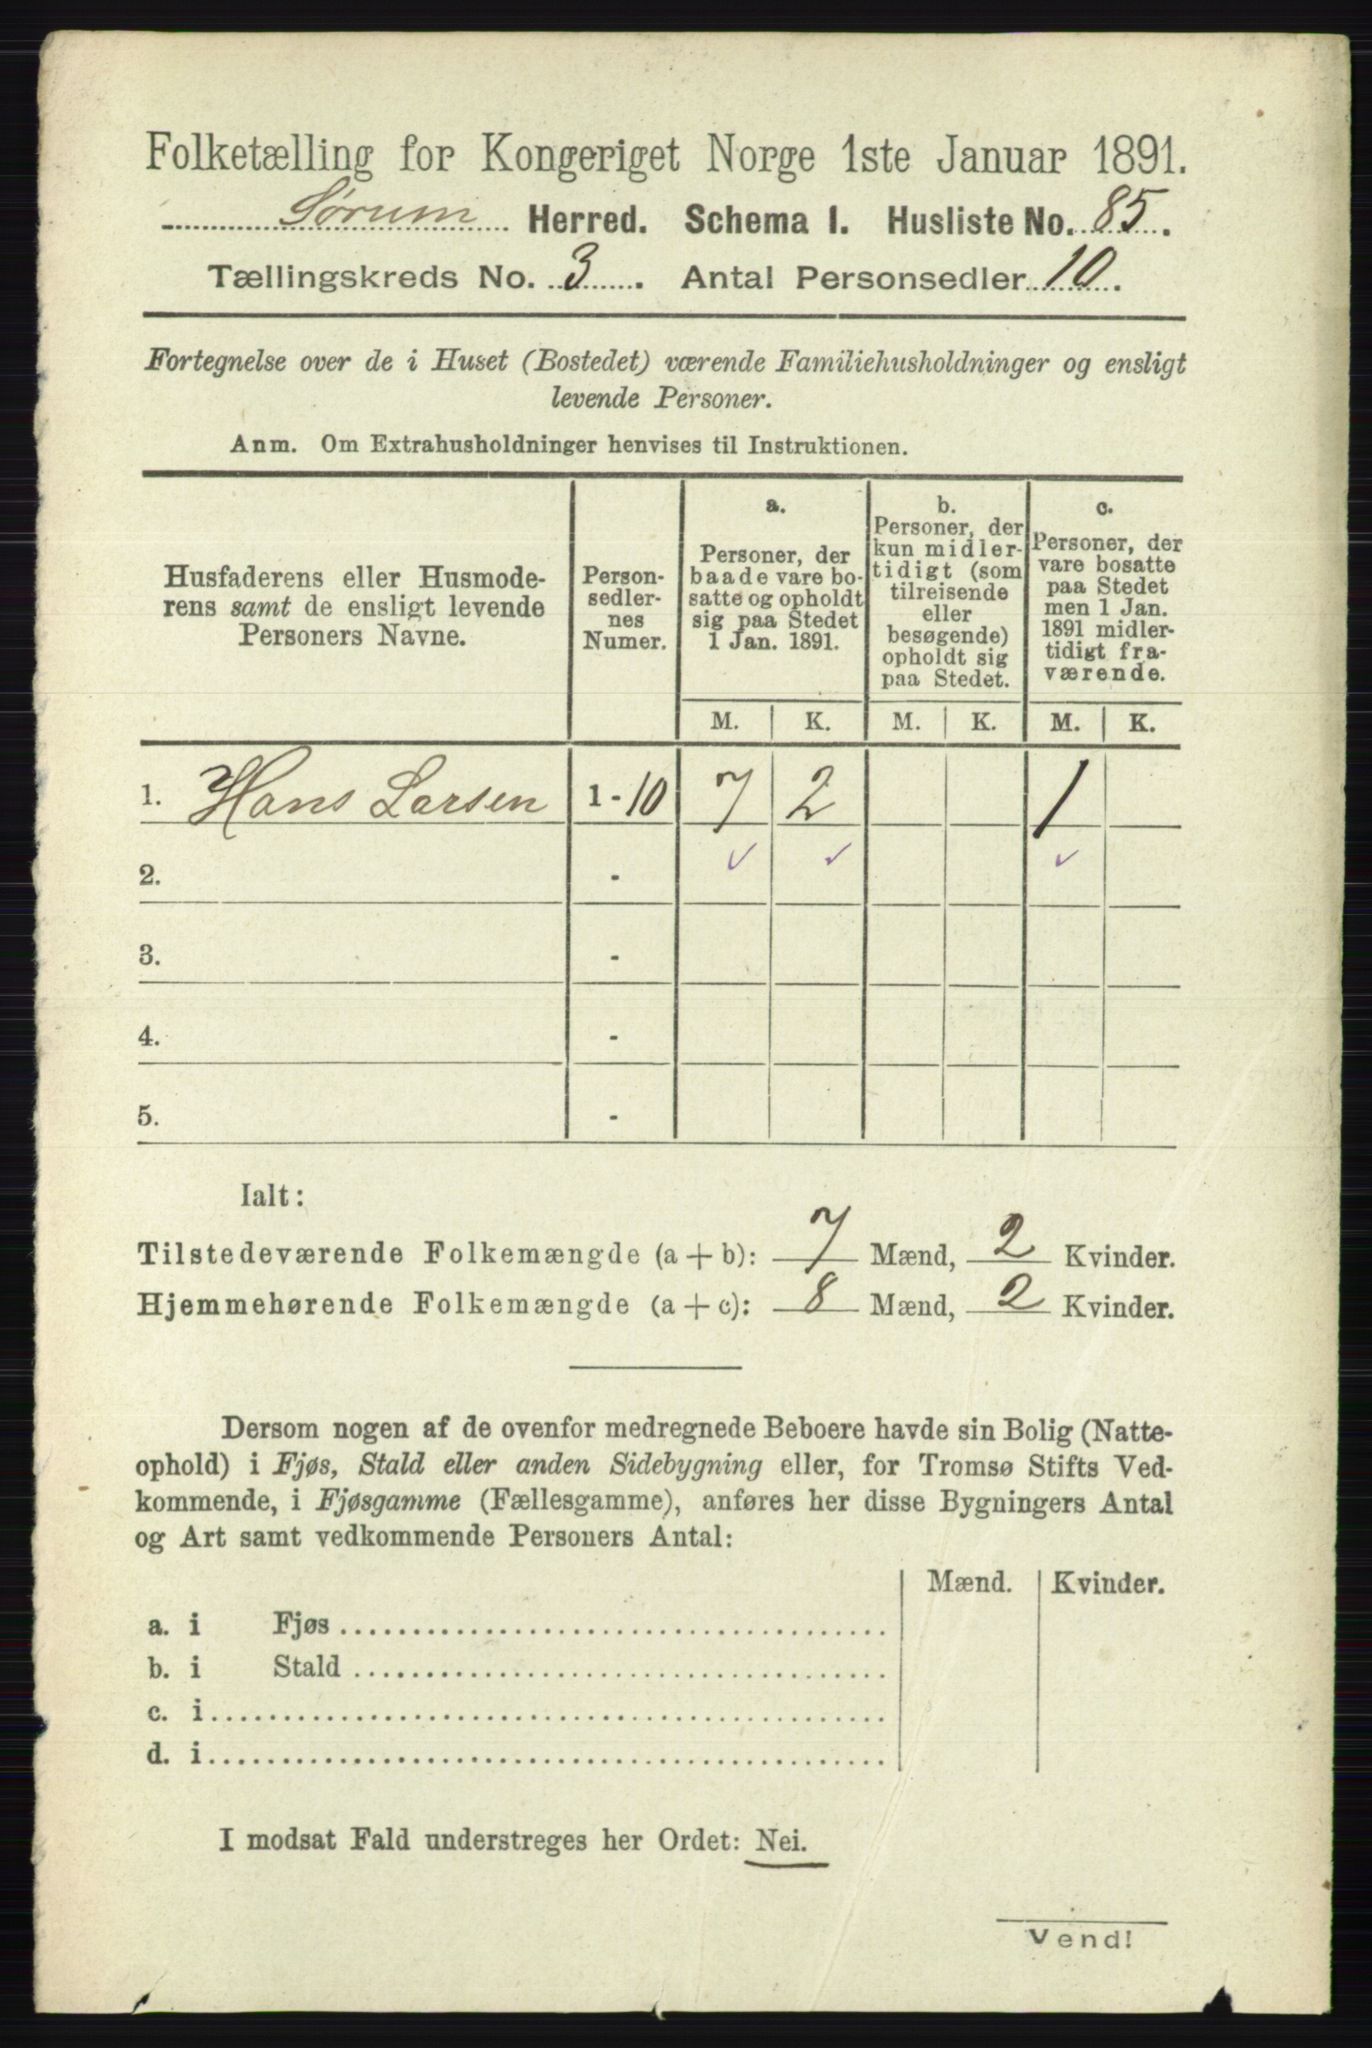 Folketælling for Kongeriget Norge 1ste Januar 1891.
Sørum Herred. Schema I. Husliste No. 85.
Tællingskreds No. 3. Antal Personsedler 10.
Fortegnelse over de i Huset (Bostedet) værende Familiehusholdninger og ensligt
levende Personer.
Anm. Om Extrahusholdninger henvises til Instruktionen.
Husfaderens eller Husmode-
rens samt de ensligt levende
Personers Navne.
Person-
sedler-
nes
Numer.
a.
Personer, der
baade vare bo-
satte og opholdt
sig paa Stedet
1 Jan. 1891.
b.
Personer, der
kun midler-
tidigt (som
tilreisende
eller
besøgende)
opholdt sig
paa Stedet.
c.
Personer, der
vare bosatte
paa Stedet
men 1 Jan.
1891 midler-
tidigt fra-
værende.
M. K. M. K. M. K.
1. Hans Larsen 1-10 7 2 1
2. -
3. -
4. -
5. -
Ialt:
Tilstedeværende Folkemængde (a + b): 7 Mænd, 2 Kvinder.
Hjemmehørende Folkemængde (a + c): 8 Mænd, 2 Kvinder.
Dersom nogen af de ovenfor medregnede Beboere havde sin Bolig (Natte-
ophold) i Fjøs, Stald eller anden Sidebygning eller, for Tromsø Stifts Ved-
kommende, i Fjøsgamme (Fællesgamme), anføres her disse Bygningers Antal
og Art samt vedkommende Personers Antal:
Mænd. Kvinder.
a. i Fjøs
b. i Stald
c. i
d. i
I modsat Fald understreges her Ordet: Nei.
Vend!